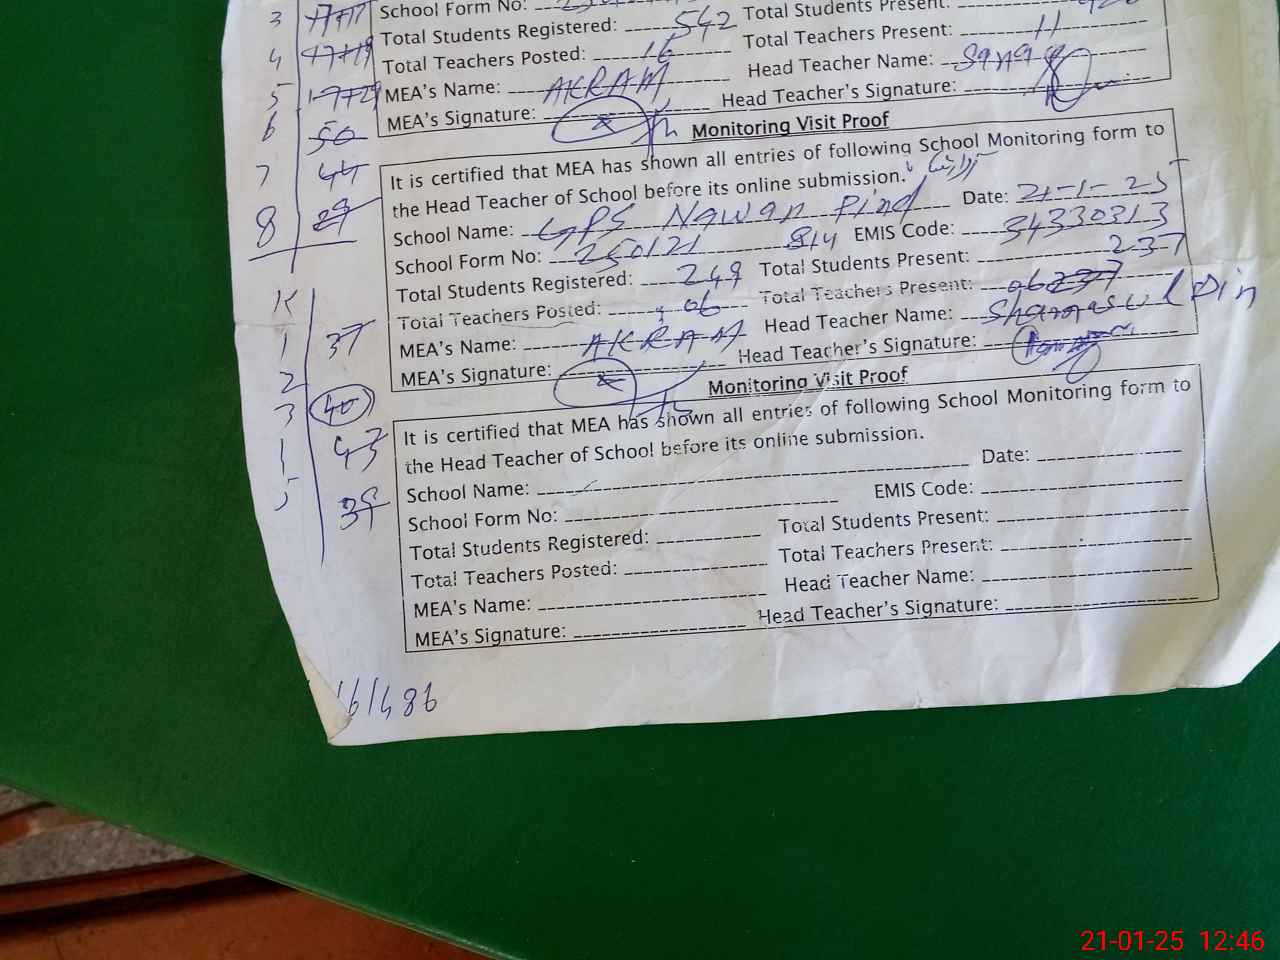 3
School Form No:
Total Students Registered: 542 Total Students Present:
4 17+19
Total Teachers Posted: 16 Total Teachers Present: 11
5
MEA's Name: AKRAM Head Teacher Name:
6 50
MEA's Signature: Head Teacher's Signature:
Monitoring Visit Proof
7 44
It is certified that MEA has shown all entries of following School Monitoring form to
the Head Teacher of School before its online submission.
8 29
School Name: GPS Nawan Pind Date: 21-1-25
School Form No: 250121 814 EMIS Code: 34330313
Total Students Registered: 249 Total Students Present: 237
K
Total Teachers Posted: 06 Total Teachers Present: 06
1 37
MEA's Name: AKRAM Head Teacher Name: Shamas ul Din
2
MEA's Signature: Head Teacher's Signature:
3 40
Monitoring Visit Proof
It is certified that MEA has shown all entries of following School Monitoring form to
1 43
the Head Teacher of School before its online submission.
5 39
School Name: Date:
School Form No: EMIS Code:
Total Students Registered: Total Students Present:
Total Teachers Posted: Total Teachers Present:
MEA's Name: Head Teacher Name:
MEA's Signature: Head Teacher's Signature:
161486
21-01-25 12:46